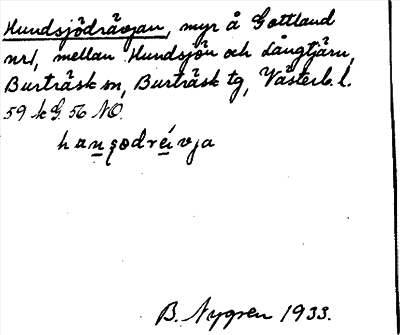 Hundsjödrävjan, myr å Gottland
nr 1, mellan Hundsjön och Långtjärn,
Burträsk sn, Burträsk tg, Västerb. l.
59 k G. 56 NO.
B. Nygren 1933.